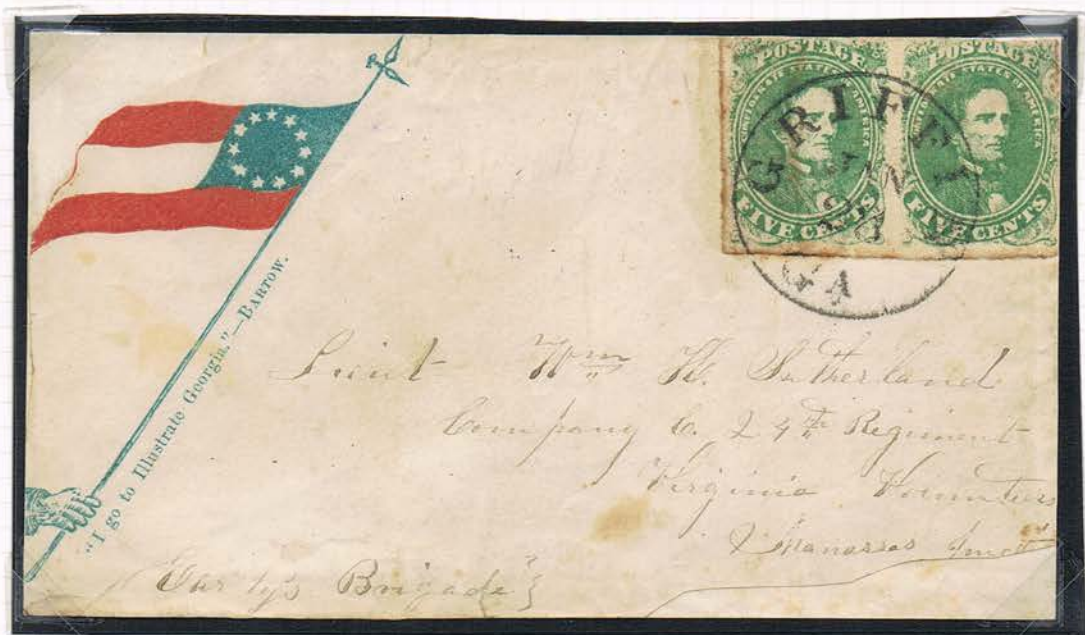 POSTAGE POSTAGE
CONFEDERATE STATES OF AMERICA CONFEDERATE STATES OF AMERICA
FIVE CENTS FIVE CENTS
GRIFFI
JAN
GA
"I go to Illustrate Georgia."—BARTOW.
Lieut Wm H. Sutherland
Company C. 24th Regiment
Virginia Volunteers
Manassas Junctn
Early's Brigade}